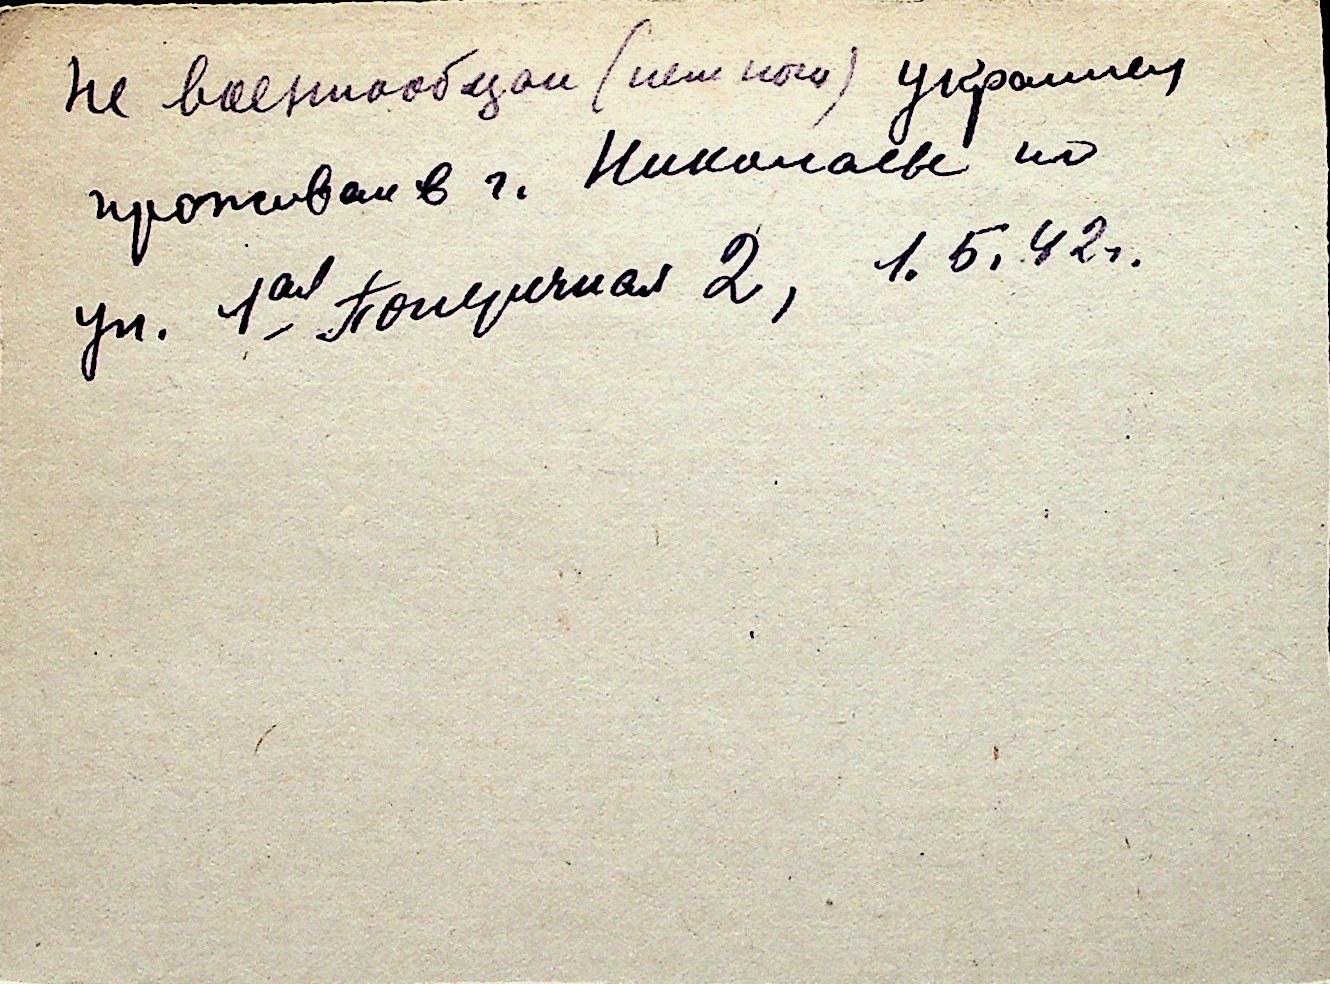 Не военнообязан (нет ноги) украинец
проживал в г. Николаеве по
ул. 1ая Поперечная 2, 1.5.42г.